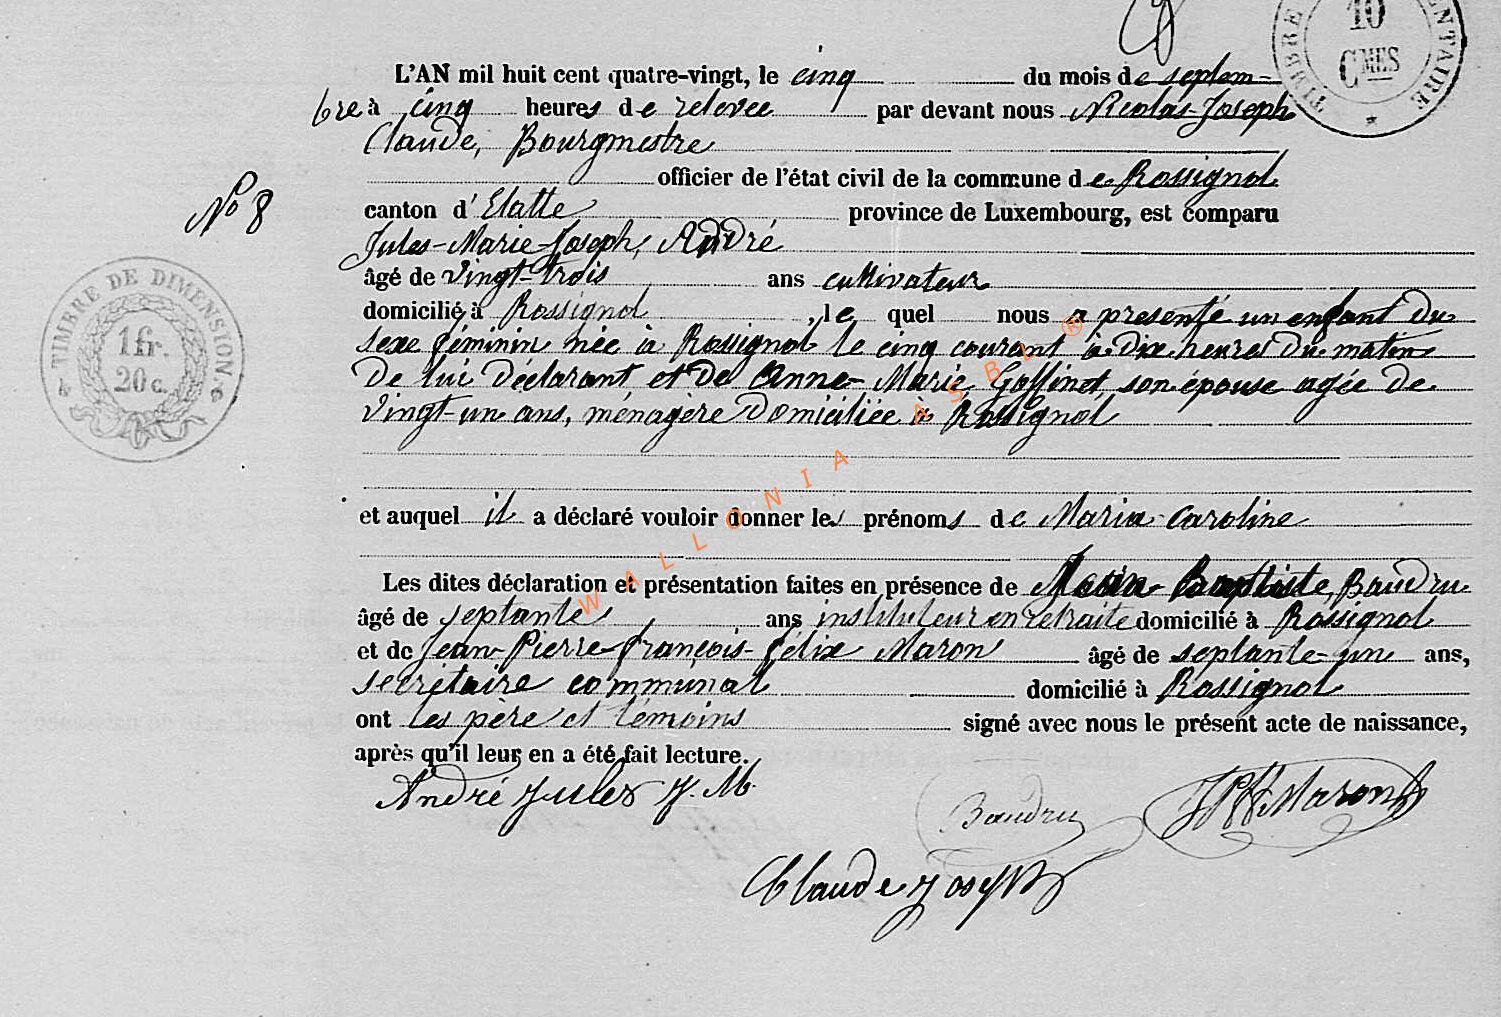 TIMBRE
10
CMES
L'AN mil huit cent quatre-vingt, le cinq du mois de septem-
bre à cinq heures de relevée par devant nous Nicolas-Joseph
Claude, Bourgmestre
officier de l'état civil de la commune de Rossignol
N° 8
canton d'Etalle province de Luxembourg, est comparu
Jules-Marie-Joseph, André
âgé de vingt-trois ans cultivateur
domicilié à Rossignol, le quel nous a présenté un enfant du
sexe féminin née à Rossignol le cinq courant à dix heures du matin
de lui déclarant et de Anne-Marie Goffinet, son épouse agée de
vingt-un ans, ménagère domiciliée à Rossignol
TIMBRE DE DIMENSION
1 fr.
20 c.
et auquel il a déclaré vouloir donner les prénoms de Maria-Caroline
Les dites déclaration et présentation faites en présence de Baptiste, Baudru
âgé de septante ans instituteur en retraite domicilié à Rossignol
et de Jean-Pierre-François-Félix Maron âgé de septante-un ans,
secrétaire communal domicilié à Rossignol
ont les père et témoins signé avec nous le présent acte de naissance,
après qu'il leur en a été fait lecture.
André Jules J. M.
Baudru
Maron
Claude Joseph
WALLONIA ASBL ®